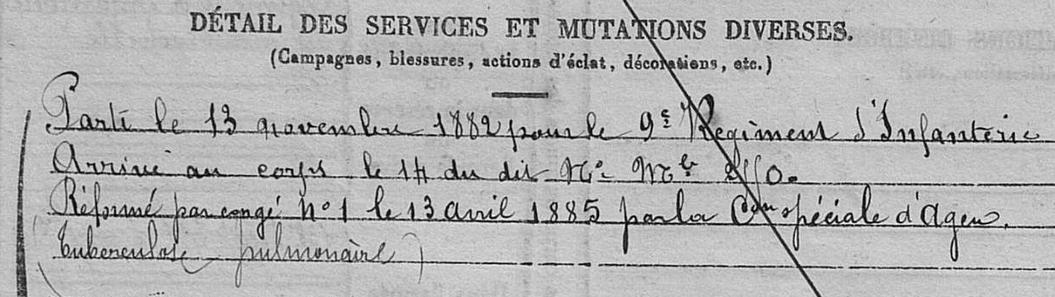 DÉTAIL DES SERVICES ET MUTATIONS DIVERSES.
(Campagnes, blessures, actions d'éclat, décorations, etc.)
Parti le 13 novembre 1882 pour le 9e Régiment d'Infanterie
Arrivé au corps le 14 du dit
Réformé par congé No 1 le 13 avril 1885 par la Con spéciale d'Agen.
(tuberculose pulmonaire)